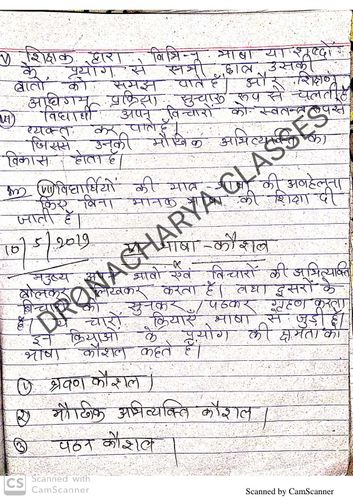 v) शिक्षक द्वारा विभिन्न भाषा या शब्दों
के प्रयोग से सभी छात्र उसकी
बातों को समझ पाते हैं। और शिक्षण
अधिगम प्रक्रिया सुचारू रूप से चलती है
vi) विद्यार्थी अपने विचारों को स्वतन्त्र रूप से
व्यक्त कर पाते हैं।
जिससे उनकी मौखिक अभिव्यक्ति का
विकास होता है।
vii) विद्यार्थियों की मातृ भाषा की अवहेलना
किए बिना मानक भाषा की शिक्षा दी
जाती है।
10/5/2019
भाषा-कौशल
मनुष्य अपने भावों एवं विचारों की अभिव्यक्ति
बोलकर लिखकर करता है। तथा दूसरों के
विचारों को सुनकर / पढ़कर ग्रहण करता
है। ये चारों क्रियाएँ भाषा से जुड़ी हैं।
इन क्रियाओं के प्रयोग की क्षमता को
भाषा कौशल कहते हैं।
① श्रवण कौशल।
② मौखिक अभिव्यक्ति कौशल।
③ पठन कौशल।
DRONACHARYA CLASSES
CS Scanned with
CamScanner
Scanned by CamScanner